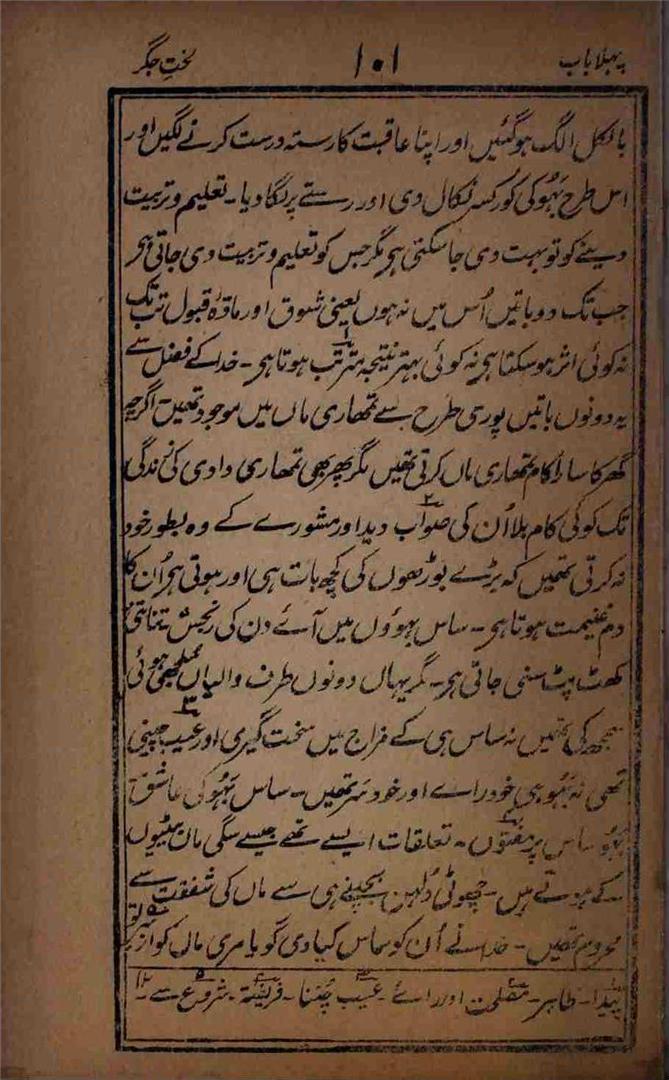 پہلا باب ۱۰۱ لختِ جگر
بالکل الگ ہوگئیں اور اپنا عاقبت کا رستہ درست کرنے لگیں اور
اس طرح بہُو کی کور کسر نکال دی اور رستے پر لگا دیا۔ تعلیم و تربیت
دینے کو تو بہت دی جا سکتی ہی مگر جس کو تعلیم و تربیت دی جاتی ہی
جب تک دو باتیں اُس میں نہ ہوں یعنی شوق اور مادّۂ قبول تب تک
نہ کوئی اثر ہو سکتا ہی نہ کوئی بہتر نتیجہ مترتّب ہوتا ہی۔ خدا کے فضل سے
یہ دونوں باتیں پوری طرح سے تمھاری ماں میں موجود تھیں اگرچہ
گھر کا سارا کام تمھاری ماں کرتی تھیں مگر پھر بھی تمھاری دادی کی زندگی
تک کوئی کام بلا اُن کی صواب دید اور مشورے کے وہ بطور خود
نہ کرتی تھیں کہ بڑے بوڑھوں کی کچھ بات ہی اور ہوتی ہی اُن کا
دم غنیمت ہوتا ہی۔ ساس بہوؤں میں آئے دن کی رنجش تناتنی
کھٹ پٹ سنی جاتی ہی۔ مگر یہاں دونوں طرف والیاں سلجھی ہوئی
سمجھ کی تھیں نہ ساس ہی کے مزاج میں سخت گیری اور عیب چینی
تھی نہ بہُو ہی خود راے اور خود سر تھیں۔ ساس بہُو کی عاشق
بہُو ساس پر مفتوں۔ تعلقات ایسے تھے جیسے سگی ماں بیٹیوں
کے ہوتے ہیں۔ چھوٹی دُلہن بچپنے ہی سے ماں کی شفقت سے
محروم تھیں۔ خدا نے اُن کو ساس کیا دی گویا مری ماں کو از سرِ نو
پیدا۔ ظاہر۔ مصلحت اور رائے۔ عیب چُننا۔ فریفتہ۔ شروع سے۔ ۱۲